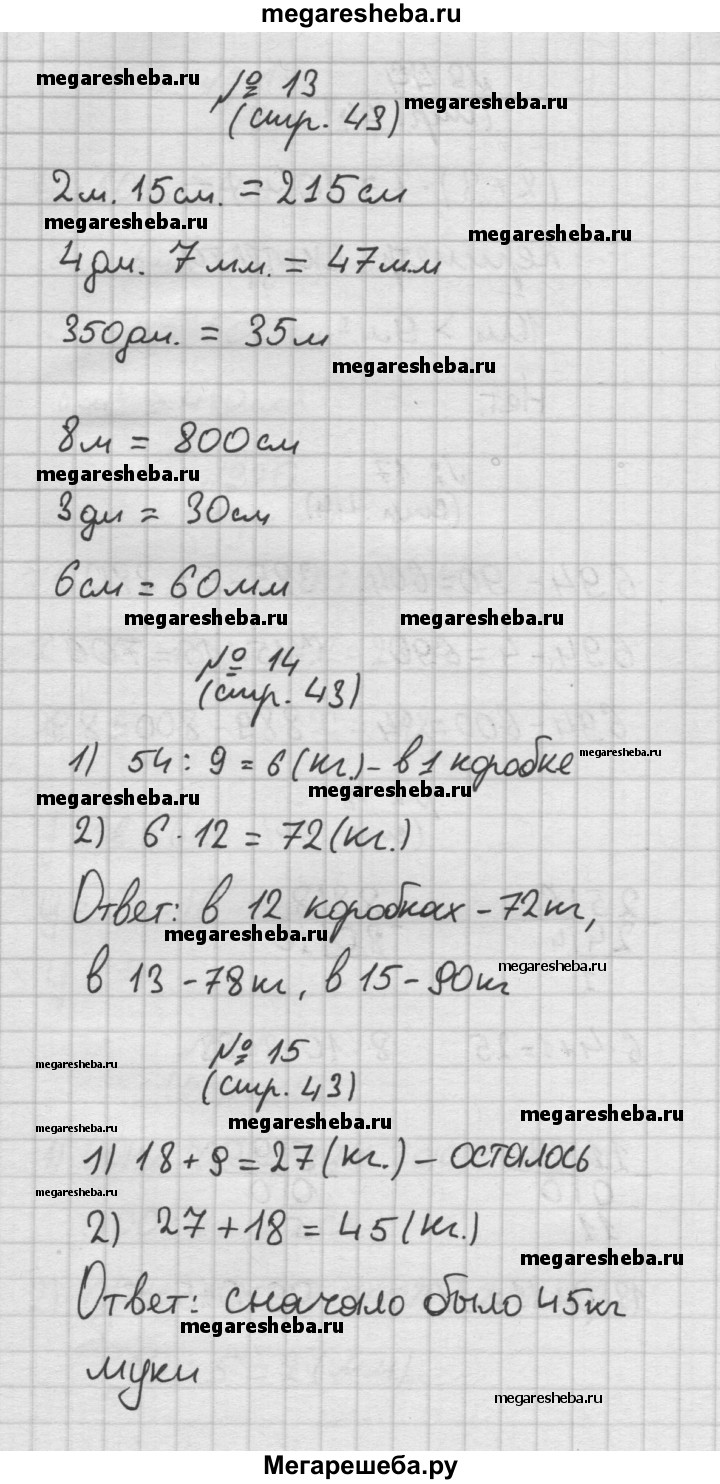 megaresheba.ru
megaresheba.ru
№ 13
(стр. 43)
megaresheba.ru
2м. 15см. = 215см
megaresheba.ru
megaresheba.ru
4дм. 7мм. = 47мм
350дм. = 35м
megaresheba.ru
8м = 800см
megaresheba.ru
3дм = 30см
6см = 60мм
megaresheba.ru
megaresheba.ru
№ 14
(стр. 43)
1) 54 : 9 = 6 (кг.) - в 1 коробке
megaresheba.ru
megaresheba.ru
megaresheba.ru
2) 6 · 12 = 72 (кг.)
Ответ: в 12 коробках - 72кг,
megaresheba.ru
в 13 - 78кг, в 15 - 90кг
megaresheba.ru
№ 15
megaresheba.ru
(стр. 43)
megaresheba.ru
megaresheba.ru
megaresheba.ru
1) 18 + 9 = 27 (кг.) - осталось
megaresheba.ru
2) 27 + 18 = 45 (кг.)
megaresheba.ru
Ответ: сначало было 45кг
megaresheba.ru
муки
megaresheba.ru
Мегарешеба.ру